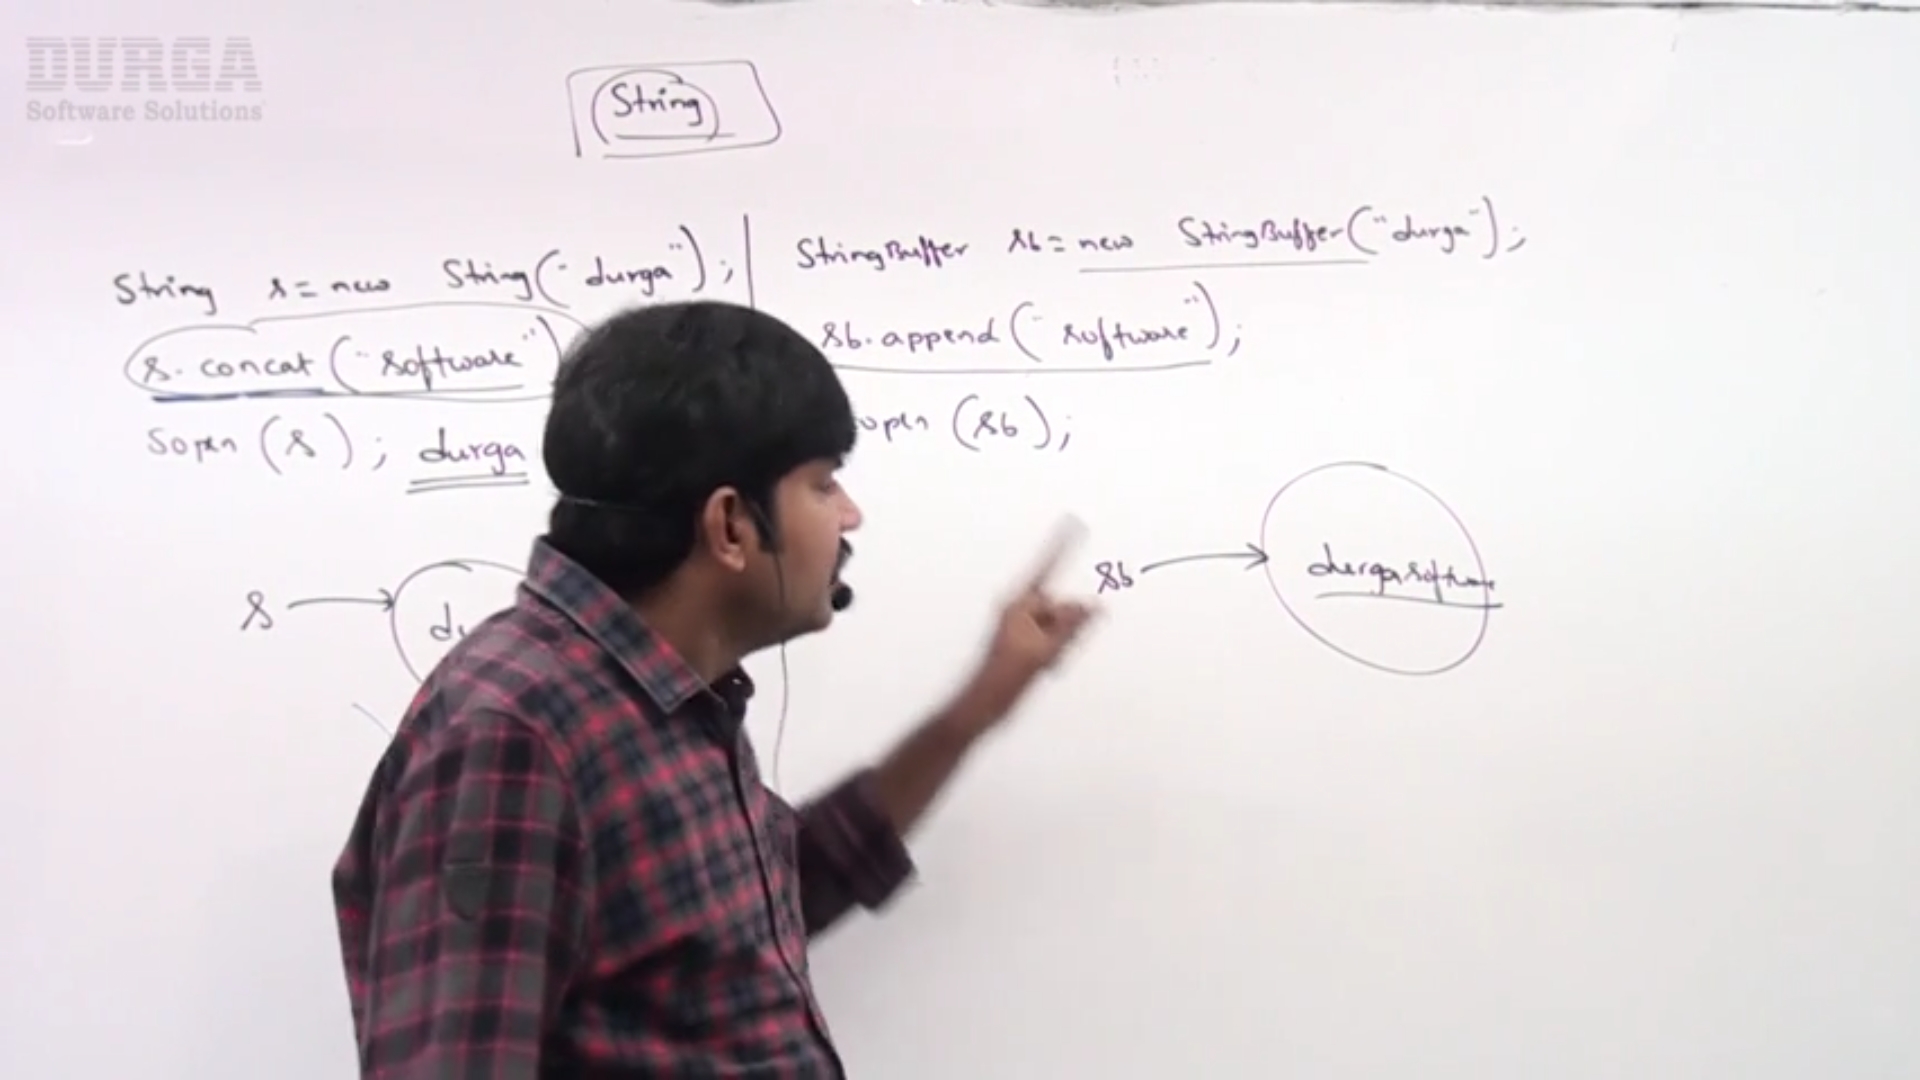 DURGA
Software Solutions
String
String s = new String("durga");
s.concat("software"
Sopln (s); durga
StringBuffer sb = new StringBuffer("durga");
sb.append("software");
opln (sb);
s
du
sb
durgasoftware